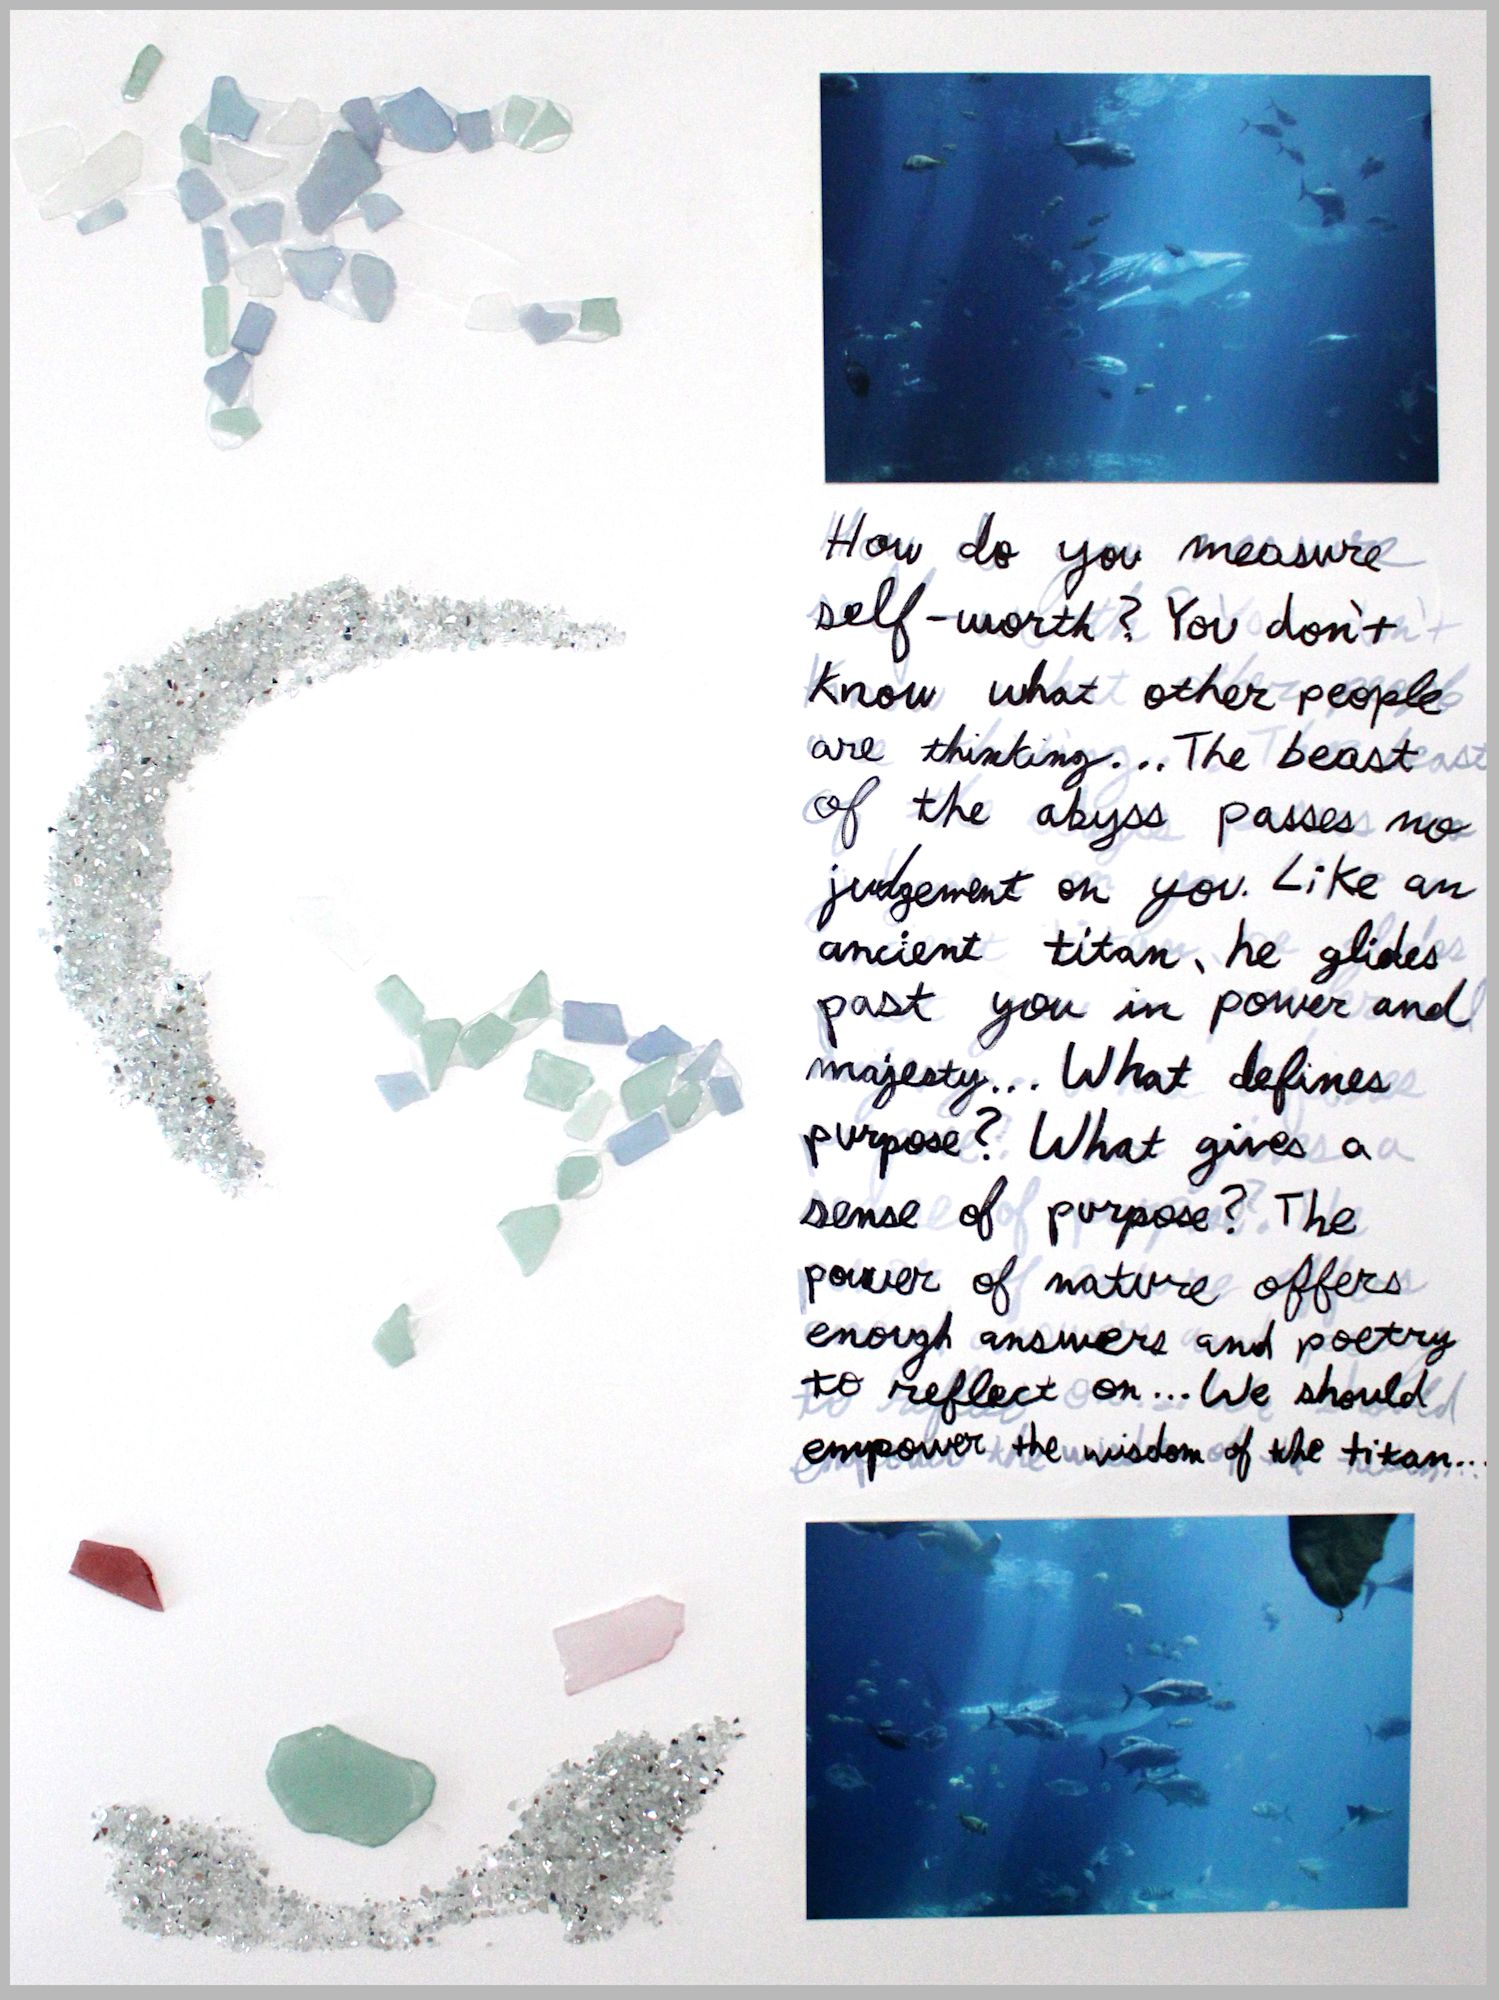 How do you measure
self-worth? You don't
know what other people
are thinking... The beast
of the abyss passes no
judgement on you. Like an
ancient titan, he glides
past you in power and
majesty... What defines
purpose? What gives a
sense of purpose? The
power of nature offers
enough answers and poetry
to reflect on... We should
empower the wisdom of the titan...